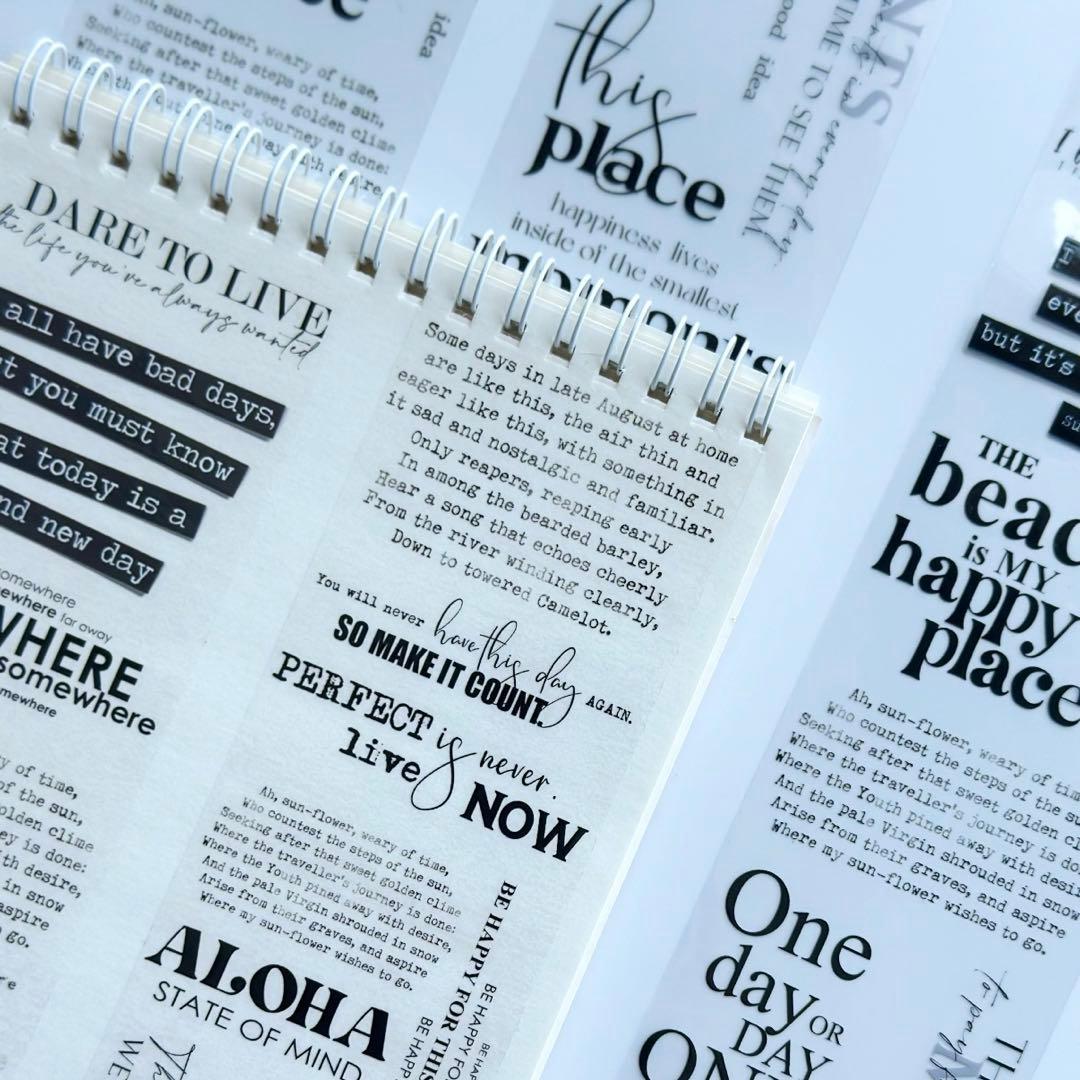 idea
Ah, sun-flower, weary of time,
Who countest the steps of the sun,
Seeking after that sweet golden clime
Where the traveller's journey is done:
this
place
happiness lives
inside of the smallest
moments
good idea
TIME TO SEE THEM
every day
DARE TO LIVE
the life you've always wanted
all have bad days,
you must know
today is a
new day
somewhere
somewhere far away
WHERE
somewhere
somewhere
of time,
of the sun,
golden clime
is done:
desire,
in snow
aspire
to go.
Some days in late August at home
are like this, the air thin and
eager like this, with something in
it sad and nostalgic and familiar.
Only reapers, reaping early
In among the bearded barley,
Hear a song that echoes cheerly
From the river winding clearly,
Down to towered Camelot.
You will never have this day AGAIN.
SO MAKE IT COUNT.
PERFECT is never.
live NOW
Ah, sun-flower, weary of time,
Who countest the steps of the sun,
Seeking after that sweet golden clime
Where the traveller's journey is done:
Where the Youth pined away with desire,
And the pale Virgin shrouded in snow
Arise from their graves, and aspire
Where my sun-flower wishes to go.
BE HAPPY FOR THIS
BE HAPPY FO
BE HAPP
ALOHA
STATE OF MIND
but it's
THE
beac
is MY
happy
place
Ah, sun-flower, weary of tim
Who countest the steps of the su
Seeking after that sweet golden cl
Where the traveller's journey is do
Where the Youth pined away with desir
And the pale Virgin shrouded in snow
Arise from their graves, and aspire
Where my sun-flower wishes to go.
One
day OR
DAY
to pay